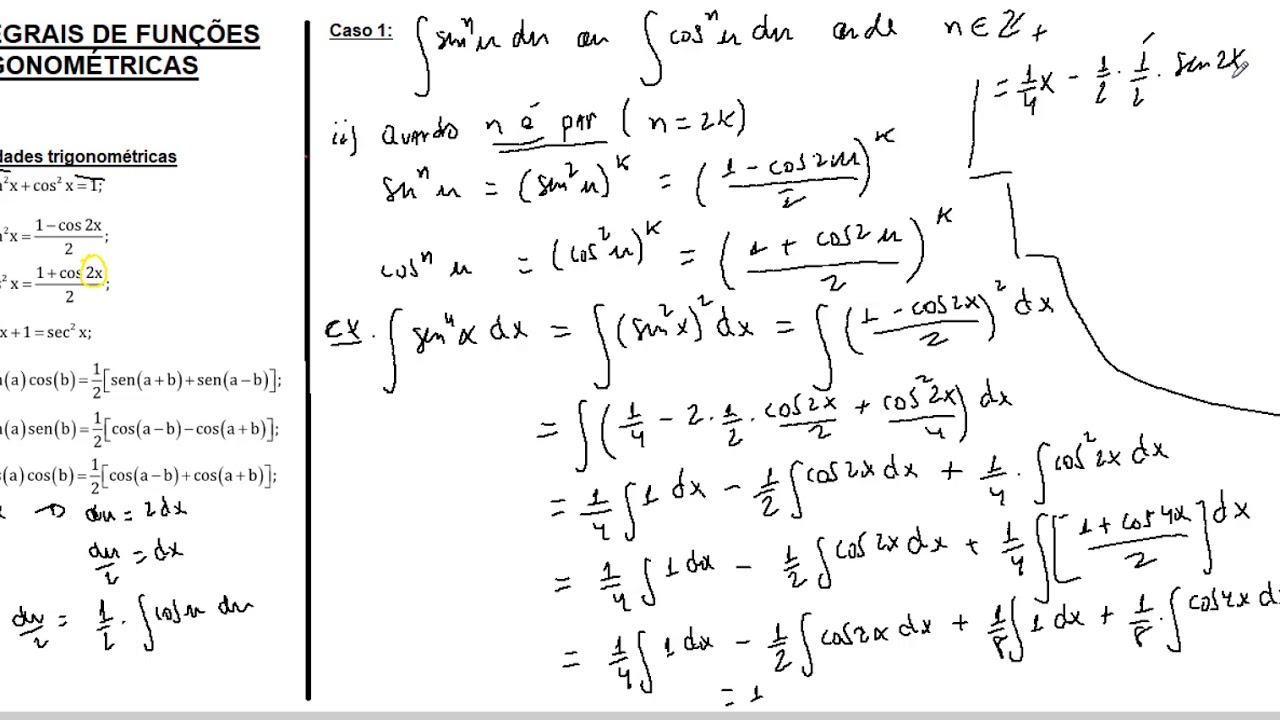 EGRAIS DE FUNÇÕES
GONOMÉTRICAS
dades trigonométricas
²x + cos² x = 1;
²x = (1 − cos 2x)/2;
² x = (1 + cos 2x)/2;
x + 1 = sec² x;
(a) cos(b) = 1/2 [sen(a + b) + sen(a − b)];
(a) sen(b) = 1/2 [cos(a − b) − cos(a + b)];
(a) cos(b) = 1/2 [cos(a − b) + cos(a + b)];
du = 2dx
du/2 = dx
du/2 = 1/2 · ∫ cos u du
Caso 1: ∫ sen^n u du ou ∫ cos^n u du onde n ∈ ℤ+
ii) Quando n é par (n = 2K)
sen^n u = (sen² u)^K = ((1 − cos 2u)/2)^K
cos^n u = (cos² u)^K = ((1 + cos 2u)/2)^K
ex. ∫ sen⁴ x dx = ∫ (sen² x)² dx = ∫ ((1 − cos 2x)/2)² dx
= ∫ (1/4 − 2 · 1/2 · cos 2x/2 + cos² 2x/4) dx
= 1/4 ∫ 1 dx − 1/2 ∫ cos 2x dx + 1/4 · ∫ cos² 2x dx
= 1/4 ∫ 1 dx − 1/2 ∫ cos 2x dx + 1/4 ∫ [(1 + cos 4x)/2] dx
= 1/4 ∫ 1 dx − 1/2 ∫ cos 2x dx + 1/8 ∫ 1 dx + 1/8 · ∫ cos 4x d
= 1
= 1/4 x − 1/2 · 1/2 · sen 2x